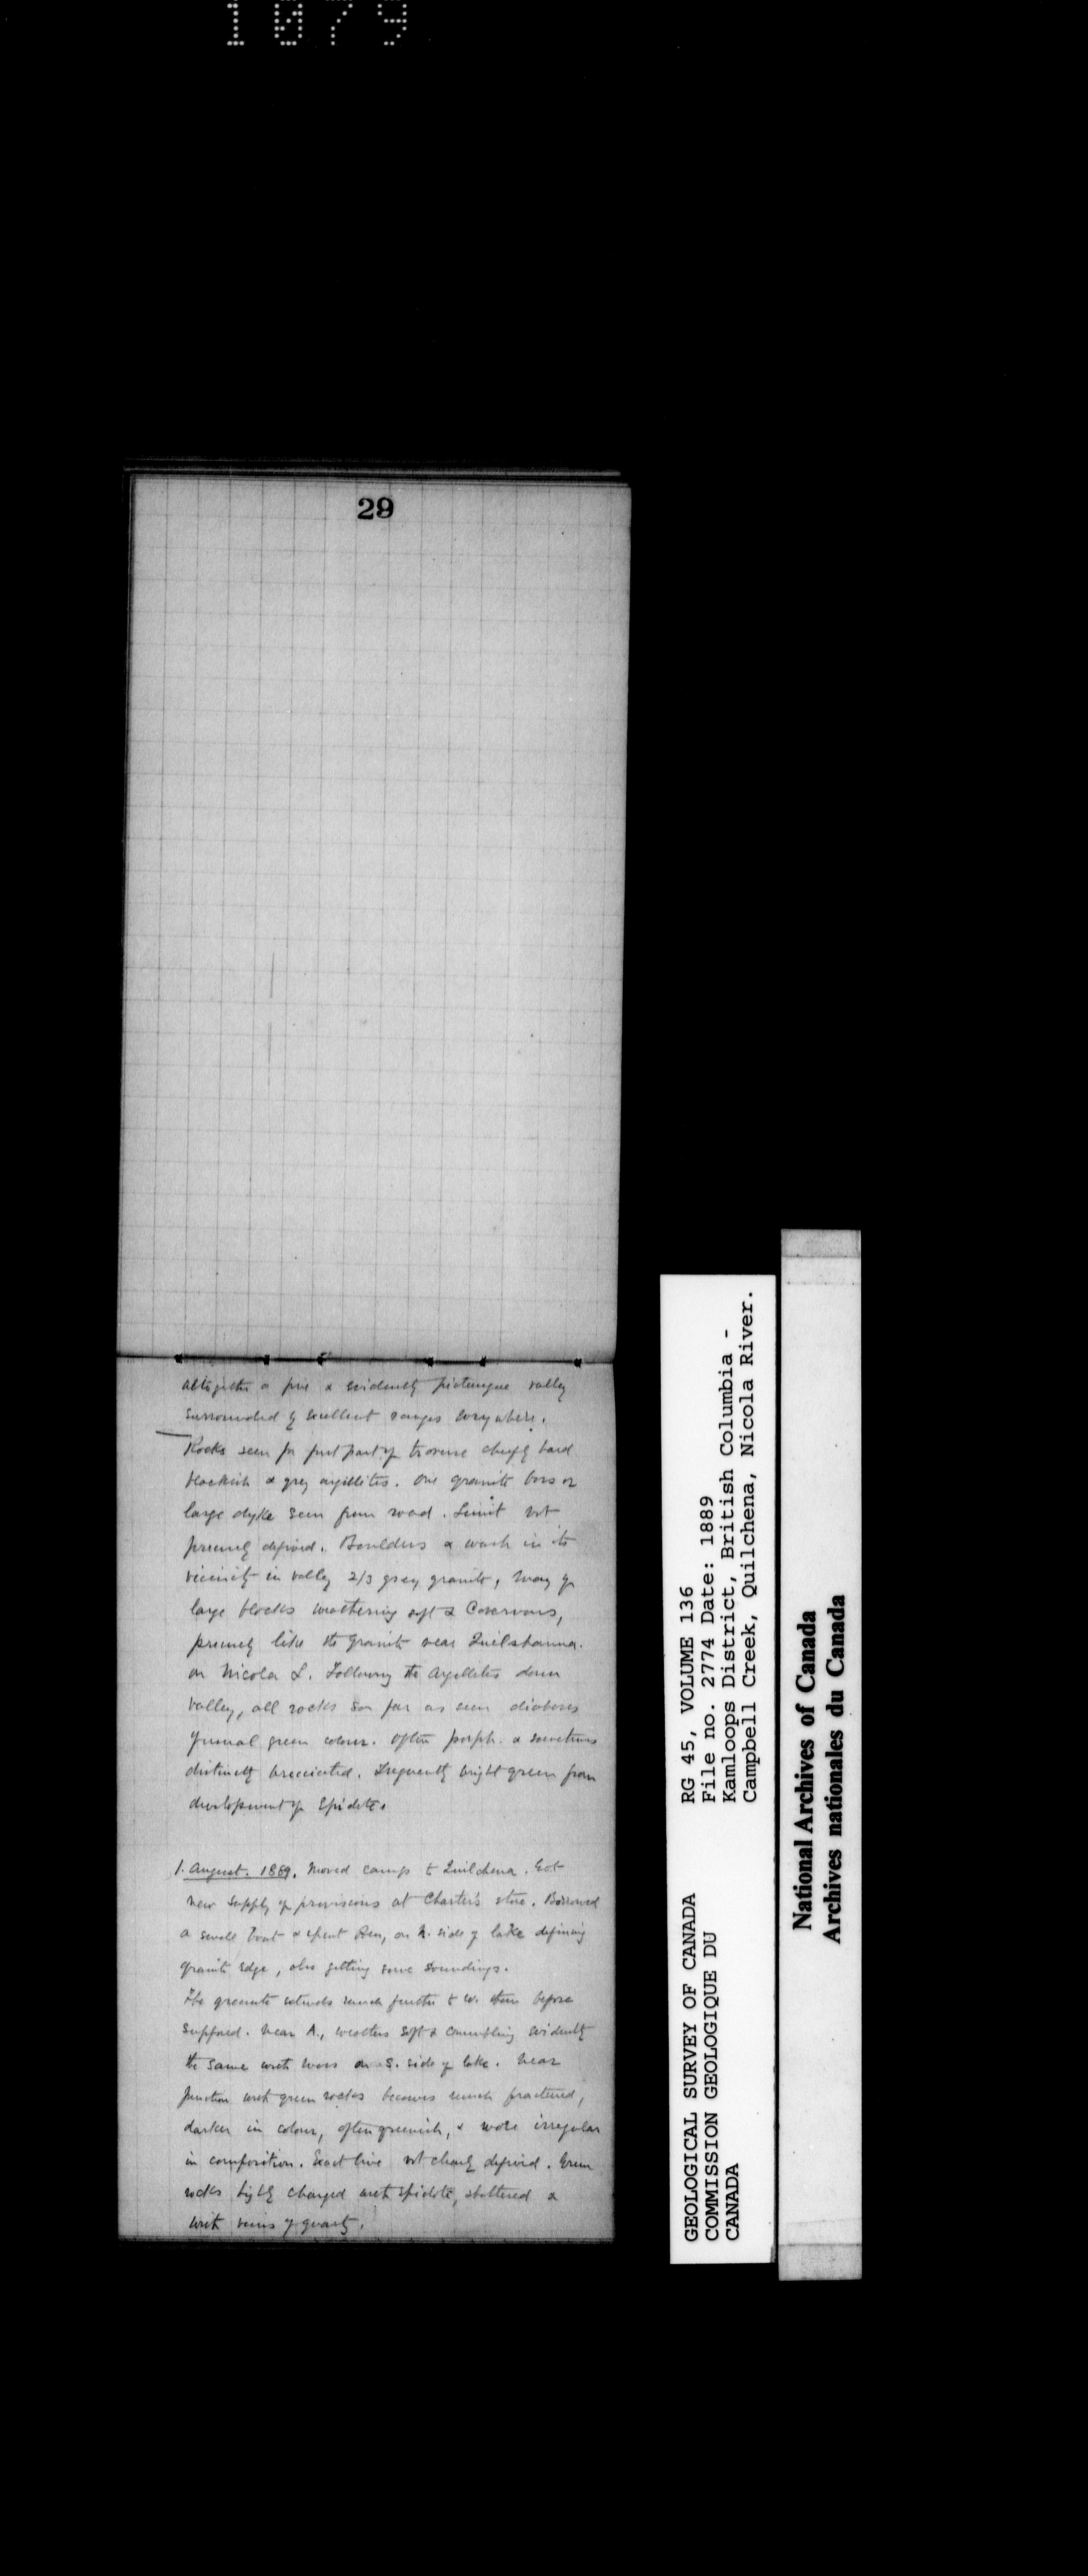 1079
29
altogether a fine & evidently picturesque valley
surrounded by excellent ranges everywhere.
Rocks seen for first part of traverse chiefly hard
blackish & grey argillites. One granite boss or
large dyke seen from road. Limit not
precisely defined. Boulders & wash in its
vicinity in valley 2/3 grey granite, many of
large blocks weathering soft & cavernous,
precisely like the granite near
on Nicola L. Following the Argillites down
valley, all rocks so far as seen diabases
of usual green colour. Often porph. & sometimes
distinctly brecciated. Frequently bright green from
development of Epidote.
1. August. 1889. Moved camp to Quilchena. Got
new supply of provisions at Charter's store. Borrowed
a small boat & spent on N. side of lake defining
granite edge, also getting some soundings.
The granite extends much further to W. than before
supposed. Near A., weathers soft & crumbling evidently
the same with mass on S. side of lake. Near
junction with green rocks becomes much fractured,
darker in colour, often greenish, & more irregular
in composition. Exact line not clearly defined. Green
rocks highly charged with epidote, shattered &
with veins of quartz.
GEOLOGICAL SURVEY OF CANADA
COMMISSION GEOLOGIQUE DU
CANADA
RG 45, VOLUME 136
File no. 2774 Date: 1889
Kamloops District, British Columbia -
Campbell Creek, Quilchena, Nicola River.
National Archives of Canada
Archives nationales du Canada